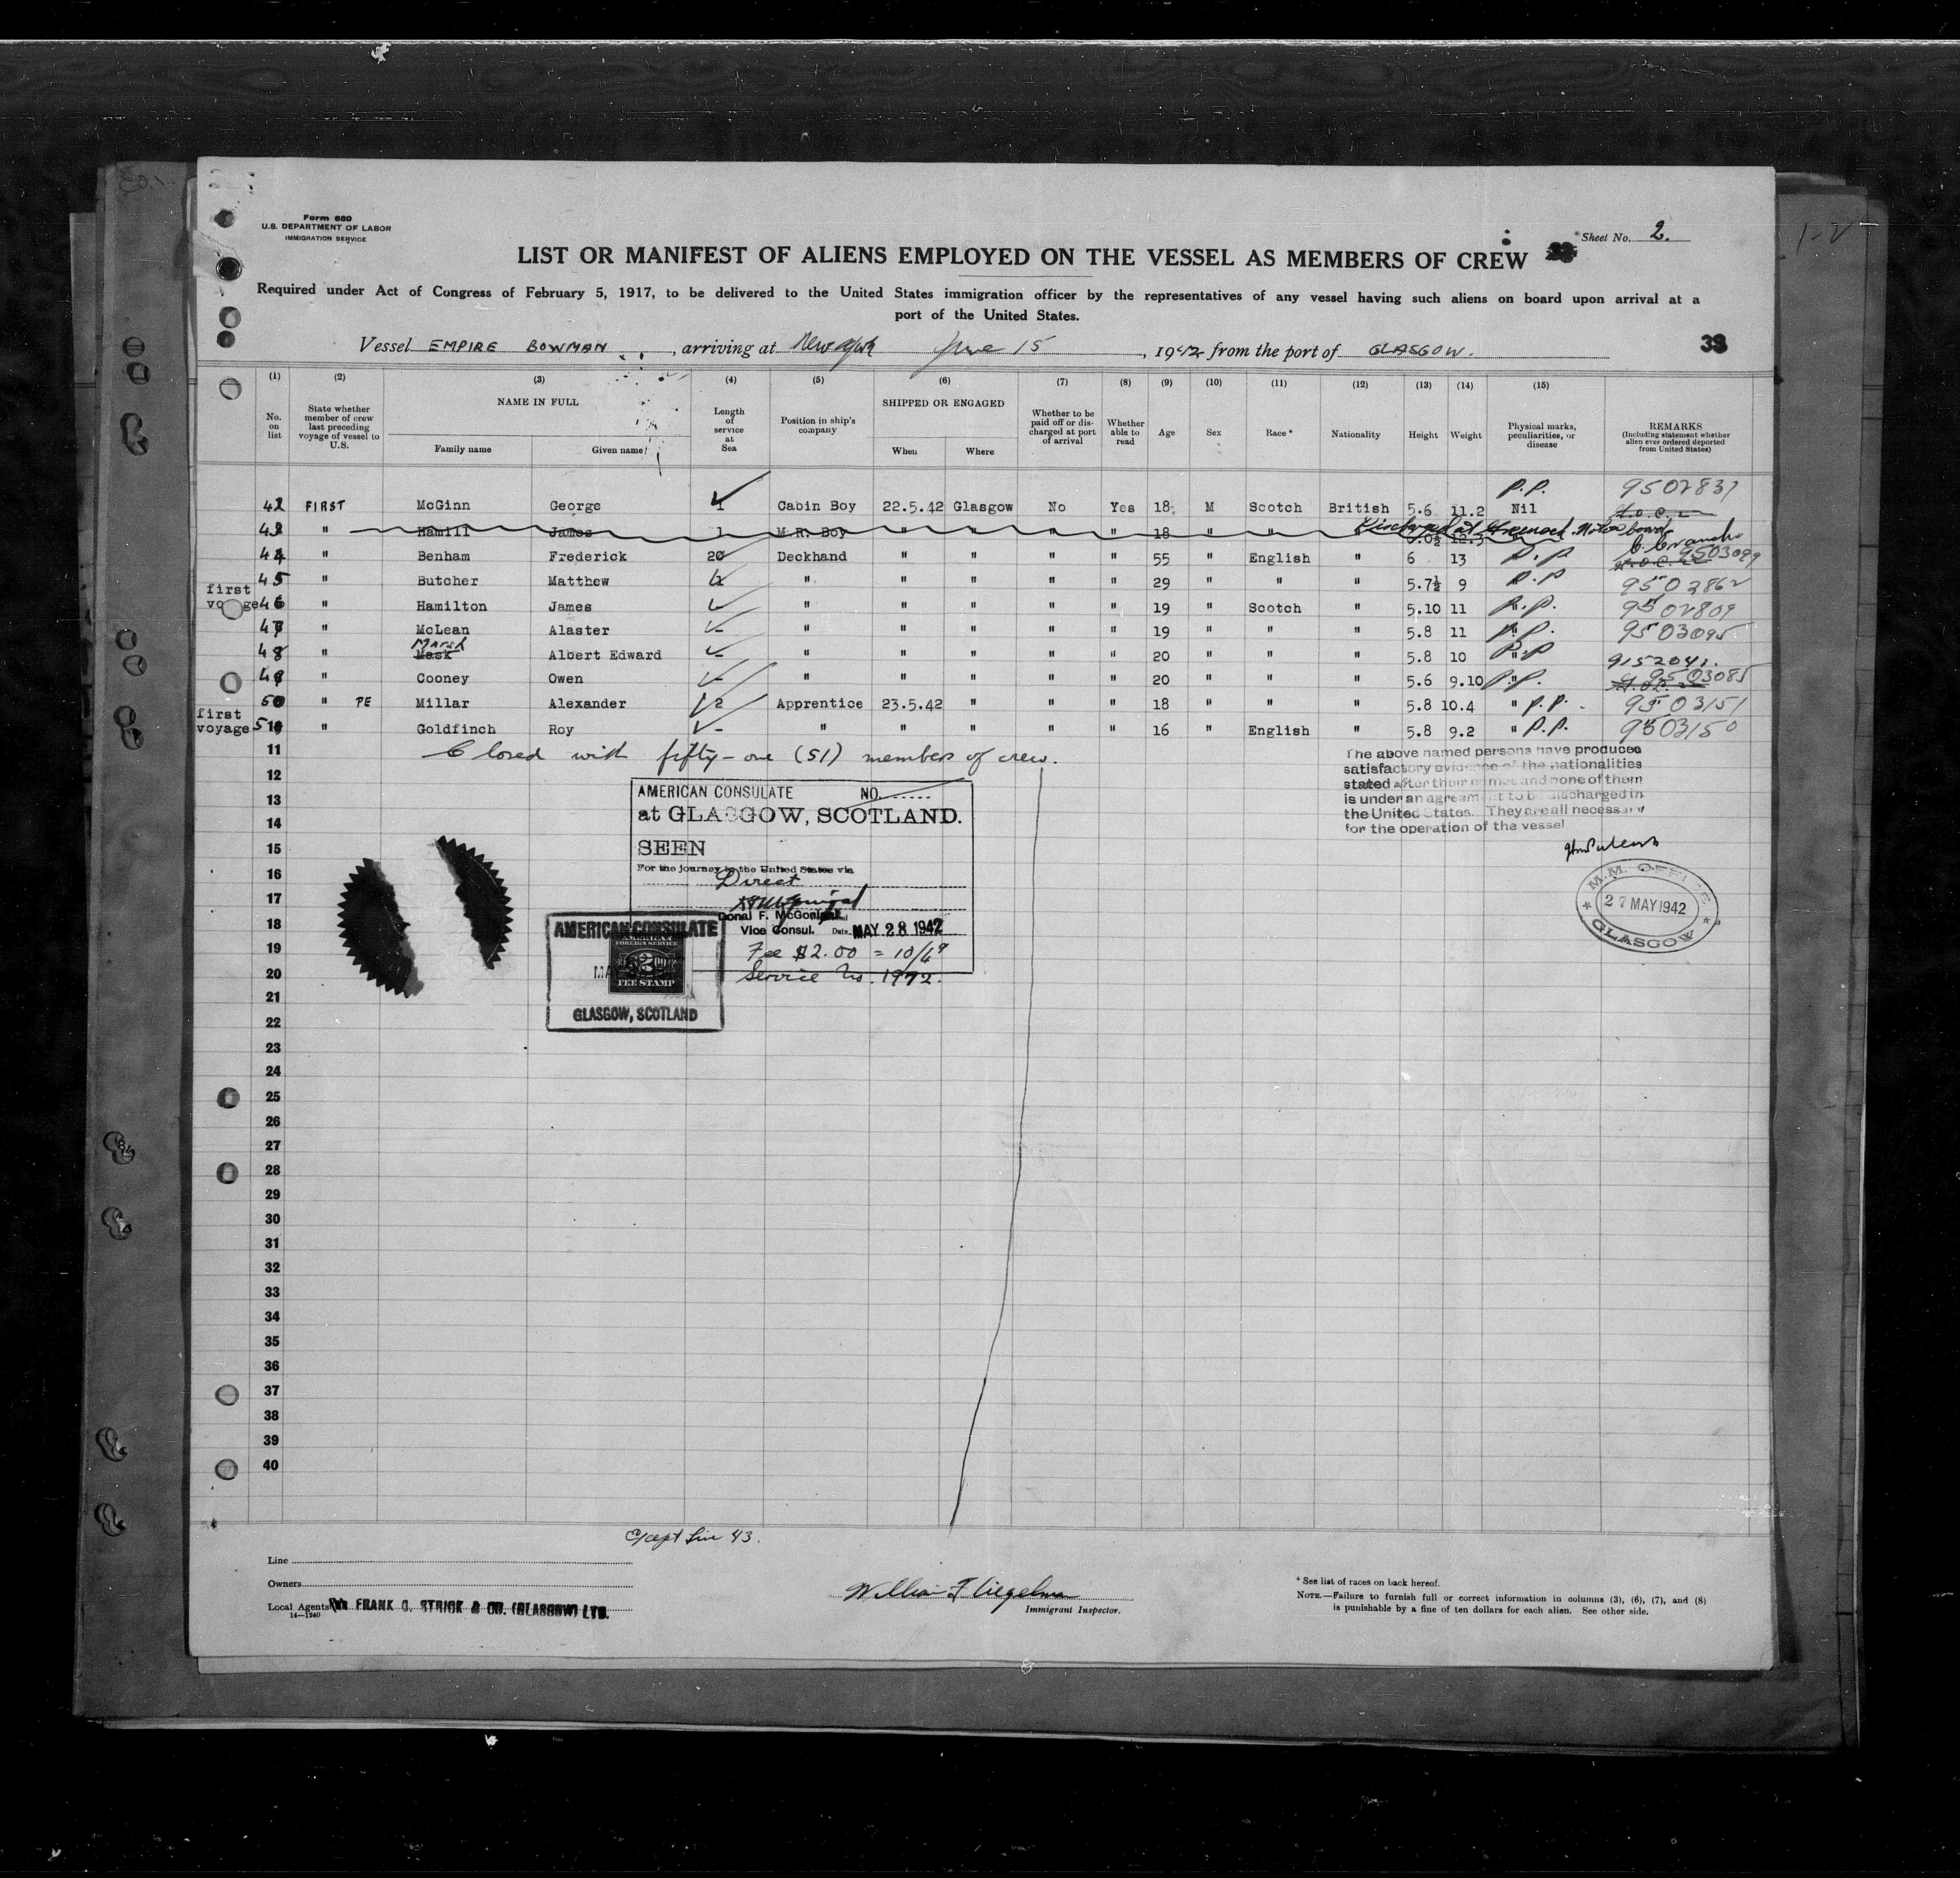 Form 680
U.S. DEPARTMENT OF LABOR
IMMIGRATION SERVICE
Sheet No. 2.
LIST OR MANIFEST OF ALIENS EMPLOYED ON THE VESSEL AS MEMBERS OF CREW
Required under Act of Congress of February 5, 1917, to be delivered to the United States immigration officer by the representatives of any vessel having such aliens on board upon arrival at a
port of the United States.
Vessel EMPIRE BOWMAN, arriving at New York June 15, 1942 from the port of GLASGOW.
33
(1) (2) (3) (4) (5) (6) (7) (8) (9) (10) (11) (12) (13) (14) (15)
No. on list State whether member of crew last preceding voyage of vessel to U.S. NAME IN FULL Family name Given name Length of service at Sea Position in ship's company SHIPPED OR ENGAGED When Where Whether to be paid off or discharged at port of arrival Whether able to read Age Sex Race* Nationality Height Weight Physical marks, peculiarities, or disease REMARKS (Including statement whether alien ever ordered deported from United States)
P.P. 9502837
42 FIRST McGinn George 1 Cabin Boy 22.5.42 Glasgow No Yes 18 M Scotch British 5.6 11.2 Nil
43 " Hamill James 1 M.R. Boy " " " " 18 " " " Discharged at Greenock. Not on board
44 " Benham Frederick 20 Deckhand " " " " 55 " English " 6 13 P.P 9503099
45 " Butcher Matthew " " " " " 29 " " " 5.7½ 9 P.P 9502862
first voyage 46 " Hamilton James " " " " " 19 " Scotch " 5.10 11 P.P. 9502809
47 " McLean Alaster " " " " " 19 " " " 5.8 11 P.P. 9503095
48 " Mask Marsh Albert Edward " " " " " 20 " " " 5.8 10 P.P 9152041.
49 " Cooney Owen " " " " " 20 " " " 5.6 9.10 P.P. 9503085
50 " PE Millar Alexander 2 Apprentice 23.5.42 " " " 18 " " " 5.8 10.4 " P.P. 9503151
first voyage 51 " Goldfinch Roy " " " " " 16 " English " 5.8 9.2 " P.P. 9503150
11 Closed with fifty-one (51) members of crew.
The above named persons have produced
satisfactory evidence of the nationalities
stated after their names and none of them
is under an agreement to be discharged in
the United States. They are all necessary
for the operation of the vessel
12
13
14
15
16
17
18
19
20
21
22
23
24
25
26
27
28
29
30
31
32
33
34
35
36
37
38
39
40
AMERICAN CONSULATE NO.
at GLASGOW, SCOTLAND.
SEEN
For the journey to the United States via
Direct
Donal F. McGonigal
Vice Consul. Date MAY 28 1942
Fee $2.00 = 10/
Service No. 1972.
AMERICAN CONSULATE
FOREIGN SERVICE
FEE STAMP
GLASGOW, SCOTLAND
M.M. OFFICE
27 MAY 1942
GLASGOW
Except Line 43.
Line
Owners
Local Agents FRANK C. STRICK & CO. (GLASGOW) LTD.
14—1240
Immigrant Inspector.
* See list of races on back hereof.
NOTE.—Failure to furnish full or correct information in columns (3), (6), (7), and (8)
is punishable by a fine of ten dollars for each alien. See other side.